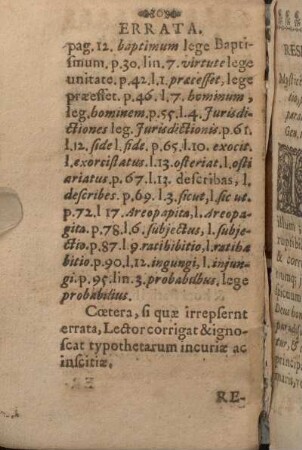 ERRATA.
pag. 12. baptimum lege Bapti-
smum. p.30. lin. 7. virtute lege
unitate. p.42. l.1. præesset, lege
præesset. p.46. l.7. hominum,
leg. hominem. p.55. l.4. Jurisdi-
ctiones leg. Jurisdictionis. p.61.
l.12. side l. fide. p.65. l.10. exocit.
l. exorcistatus. l.13. osteriat. l. osti
ariatus. p.67. l.13. describas, l.
describes. p.69. l.3. sicut, l. sic ut.
p.72. l 17. Areopapita, l. Areopa-
gita. p.78. l.6. subjectus, l. subje-
ctio. p.87. l.9. ratibibitio, l. ratiha
bitio. p.90. l.12. ingungi, l. injun-
gi. p.95. lin.3. probabilbus, lege
probabilius.
Cœtera, si quæ irrepsernt
errata, Lector corrigat & igno-
scat typothetarum incuriæ ac
inscitiæ.
RE-